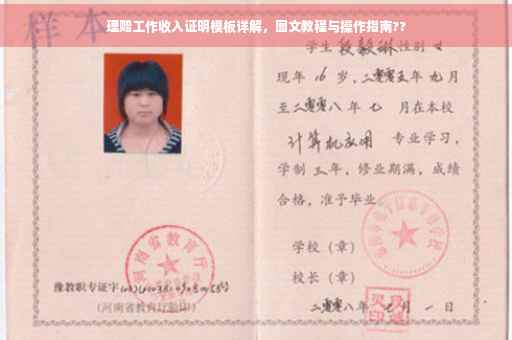 理赔工作收入证明模板详解，图文教程与操作指南??
样本
学生段毅琳性别女
现年16岁，二零零五年九月
至二零零八年七月在本校
计算机应用 专业学习，
学制三年，修业期满，成绩
合格，准予毕业
学校（章）
河南省教育厅
校长（章）
豫教职专证字
（河南省教育厅验印）
二零零八年七月一日